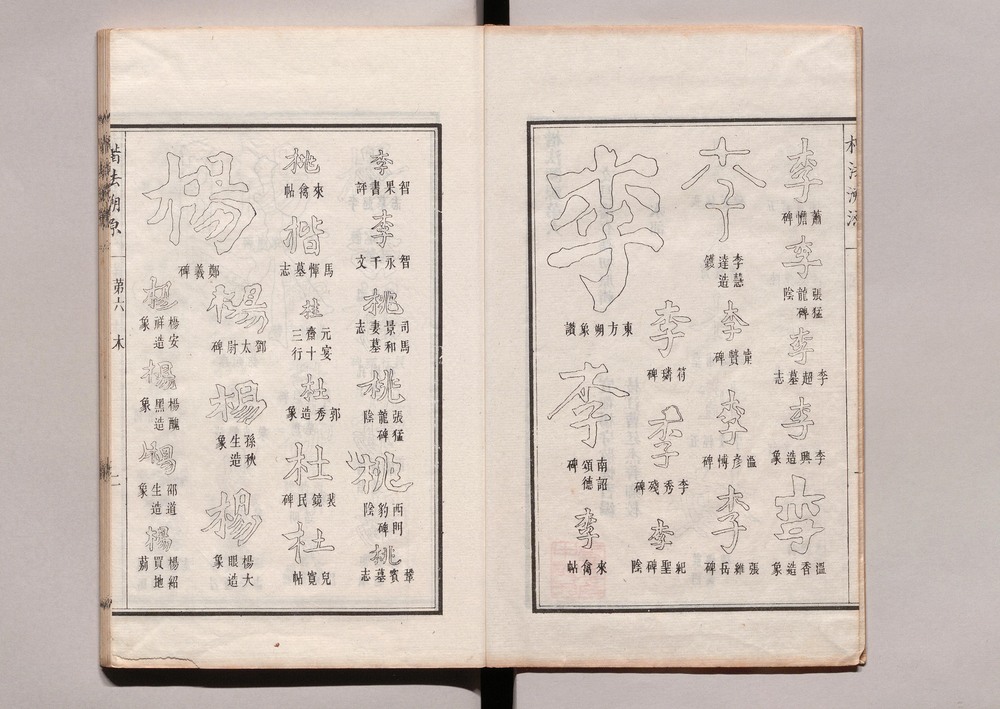 李
蕭憺碑
李
張猛龍碑陰
李
李超墓志
李
李興造象
李
溫香造象
李
李慧達造鐫
李
嵩贊碑
李
溫彥博碑
李
張維岳碑
李
符璘碑
李
李秀殘碑
李
紀聖碑陰
李
東方朔象讚
李
南詔德頌碑
李
來禽帖
李
智果書評
李
智永千文
桃
司馬景和妻墓志
桃
張猛龍碑陰
桃
西門豹碑陰
桃
鞏賓墓志
桃
來禽帖
楷
馬惲墓志
桂
元宴齋十三行
杜
郭秀造象
杜
裴鏡民碑
杜
兒寬帖
楊
鄭羲碑
楊
鄧太尉碑
楊
孫秋生造象
楊
楊大眼造象
楊
楊安祥造象
楊
楊醜黑造象
楊
邵道生造象
楊
楊紹買地莂
楷法溯源
第六 木